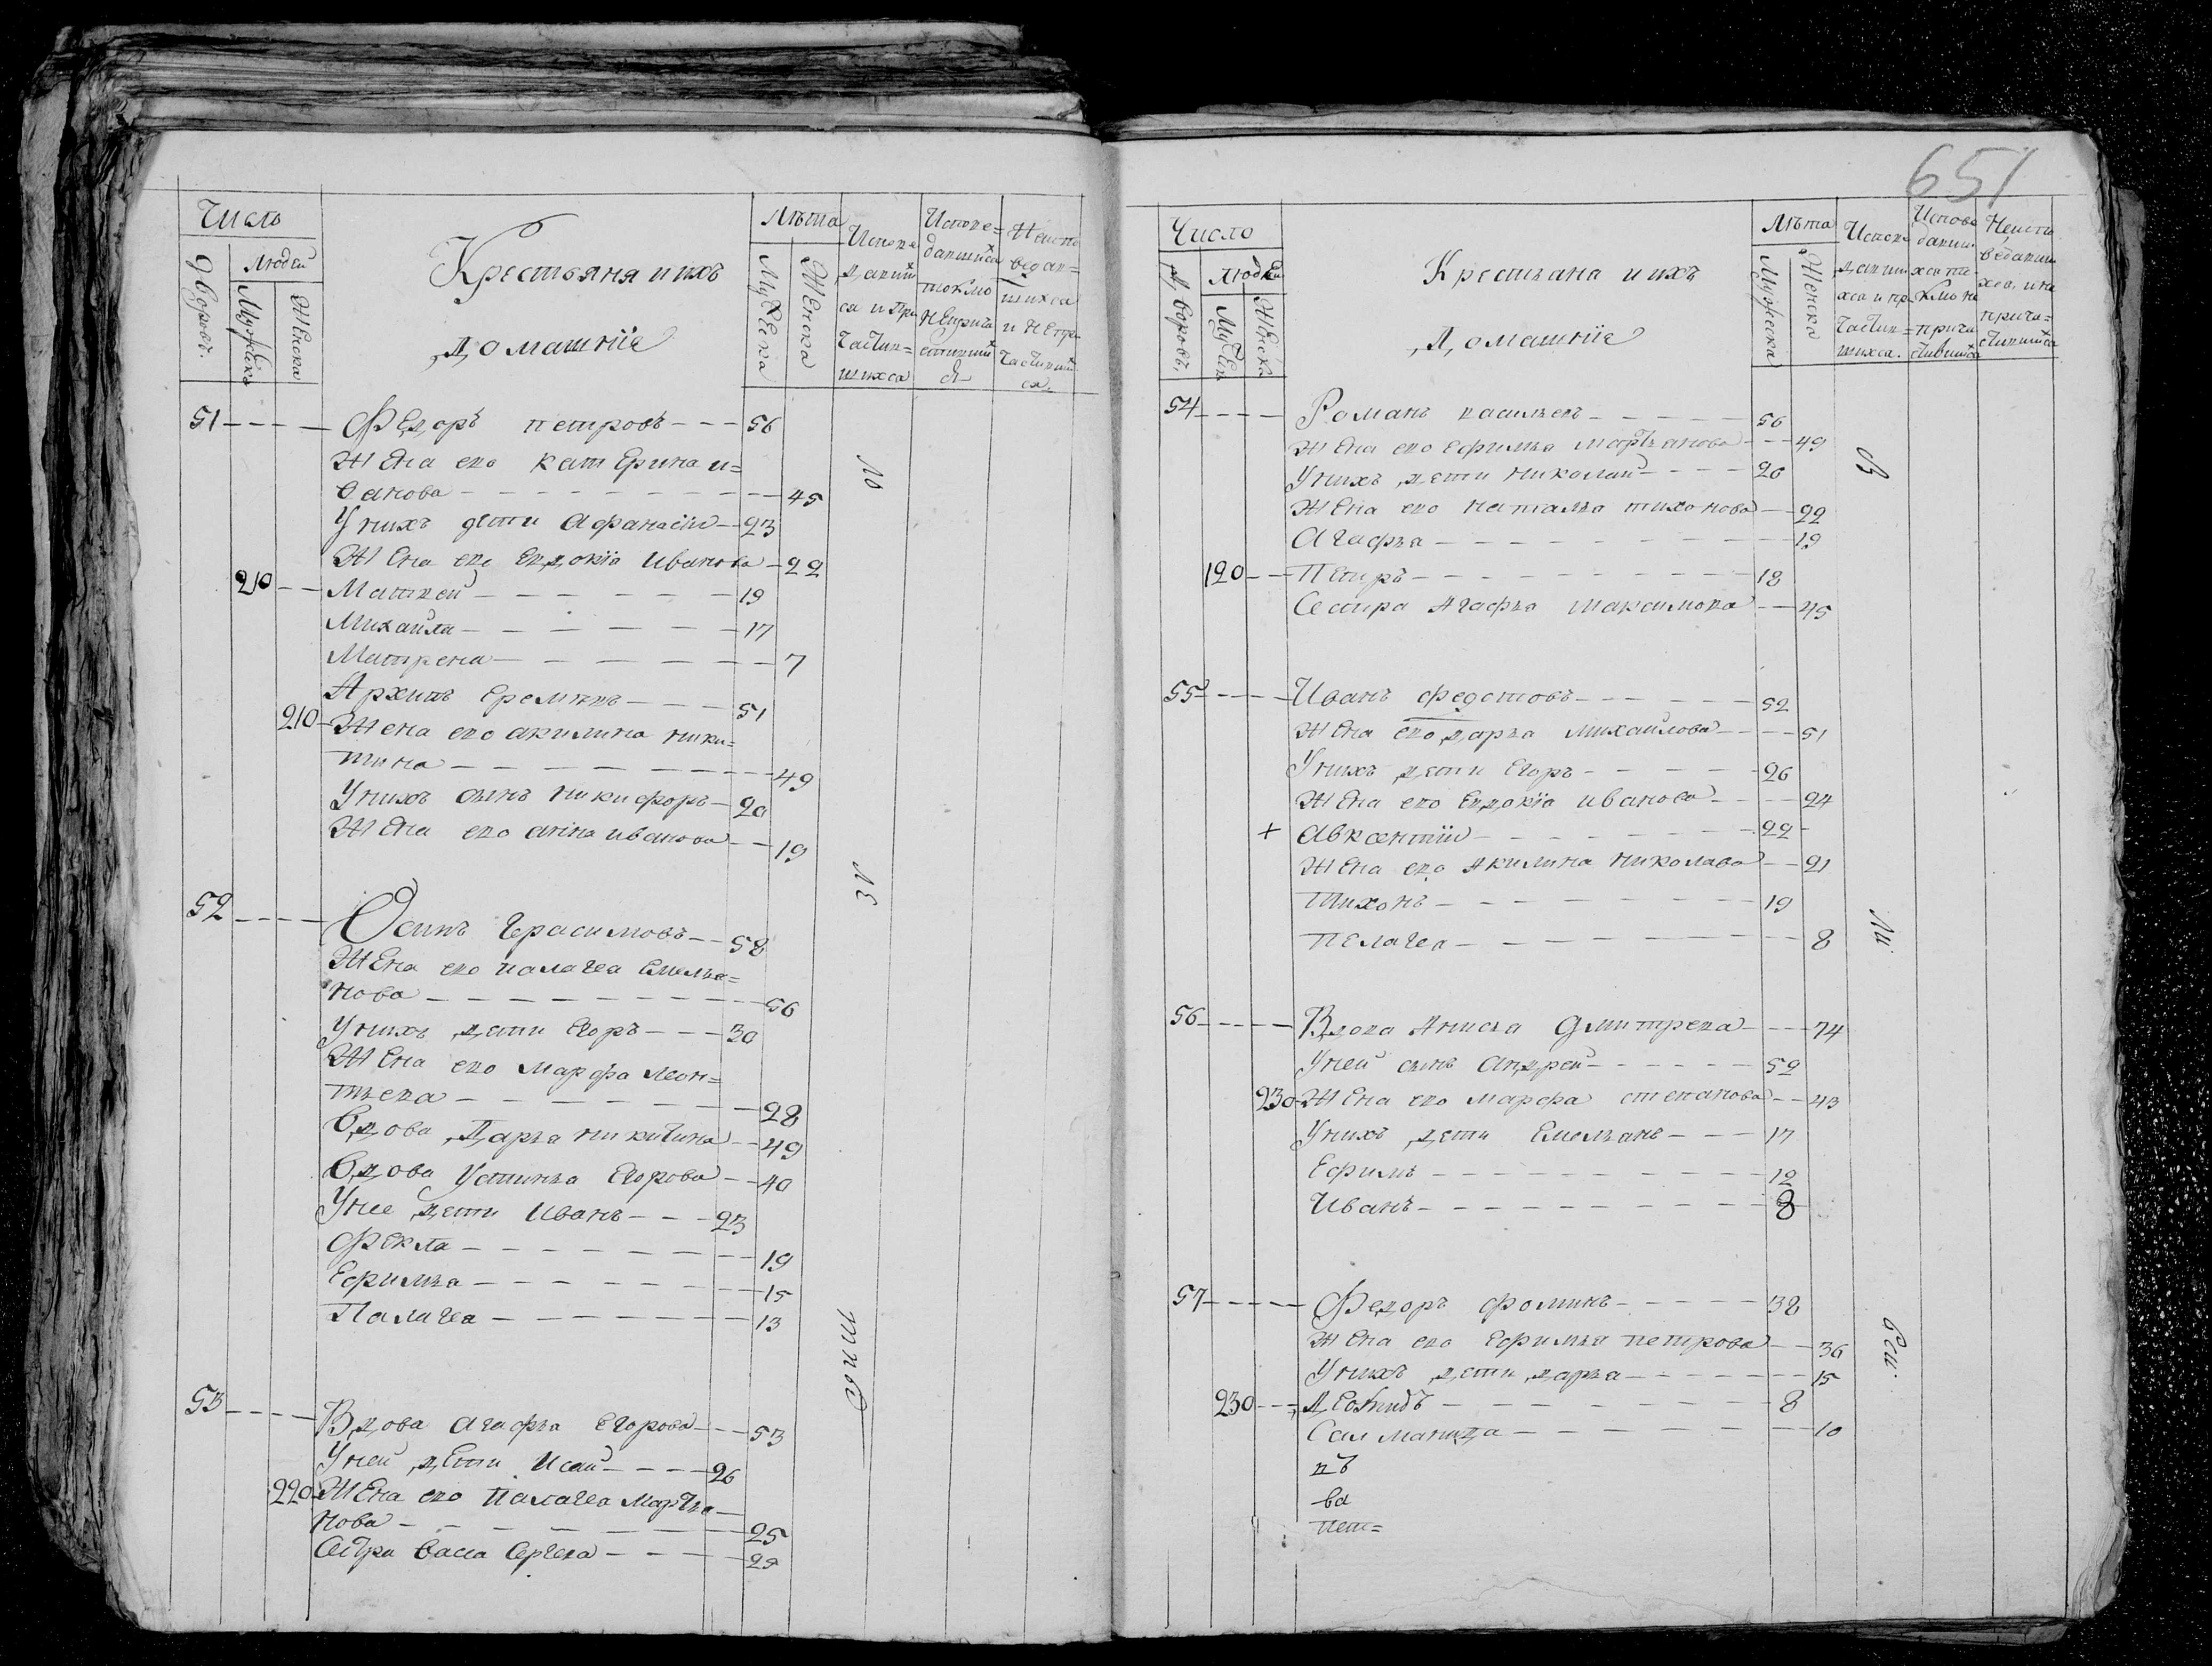 Число
Людей
Дворовъ.
Мужеска
Женска
Крестьяня и ихъ
Домашніе
Лѣта
Мужеска
Женска
Испове
давши
ся и При
частив=
шихся
Испове=
давшися
токмо
Неприча
стивши
ся
Неиспо
ведав=
шихся
и Непри
частивши
ся.
51 Федоръ петровъ 56
Жена ево катерина и=
ванова 45
У нихъ дети Афанасій 23
Жена ево Евдокія Иванова 22
210 Матвей 19
Михаила 17
Матрена 7
Архипъ Еремѣевъ 51
210 Жена ево акилина ники=
тина 49
У нихъ сынъ никифоръ 20
Жена ево анна иванова 19
52 Осипъ Герасимовъ 58
Жена ево палагея Емелья=
нова 56
У нихъ дети Егоръ 30
Жена ево марфа леон=
тьева 28
Вдова Дарья никитина 49
Вдова Устинья Егорова 40
У нее дети Иванъ 23
Фекла 19
Ефимья 15
Палагея 13
53 Вдова Агафья Егорова 53
У ней дети Исай 26
220 Жена ево Палагея Мартья
нова 25
Сестра Васса Сергева 29
651
Число
Людей
Дворовъ.
Мужеска
Женска
Крестьяна и ихъ
Домашніе
Лѣта
Мужеска
Женска
Испове
давши
хся и пр.
частив=
шихся.
Испове
давши
хся то
кмо не
прича
стившихся
Неиспо
ведавши
хся, и не
прича=
стившися
54 Романъ васильевъ 56
Жена ево Ефимья мартьянова 49
У нихъ дети николай 26
Жена ево наталья тихонова 22
Агафья 19
120 Петръ 18
Сестра Агафья Максимова 45
55 Иванъ федотовъ 52
Жена ево дарья михайлова 51
У нихъ дети Егоръ 26
Жена ево Евдокія иванова 24
+ Авксентій 22
Жена ево Акилина николава 21
Тихонъ 19
Пелагея 8
56 Вдова Анисья Дмитрева 74
У ней сынъ Андрей 52
230 Жена ево марфа степанова 43
У нихъ дети Емельянъ 17
Ефимъ 12
Иванъ 8
57 Федоръ фоминъ 38
Жена ево Ефимья петрова 36
У нихъ дети дарья 15
230 Деонидъ 8
Саломанида 10
въ
ва
пет=